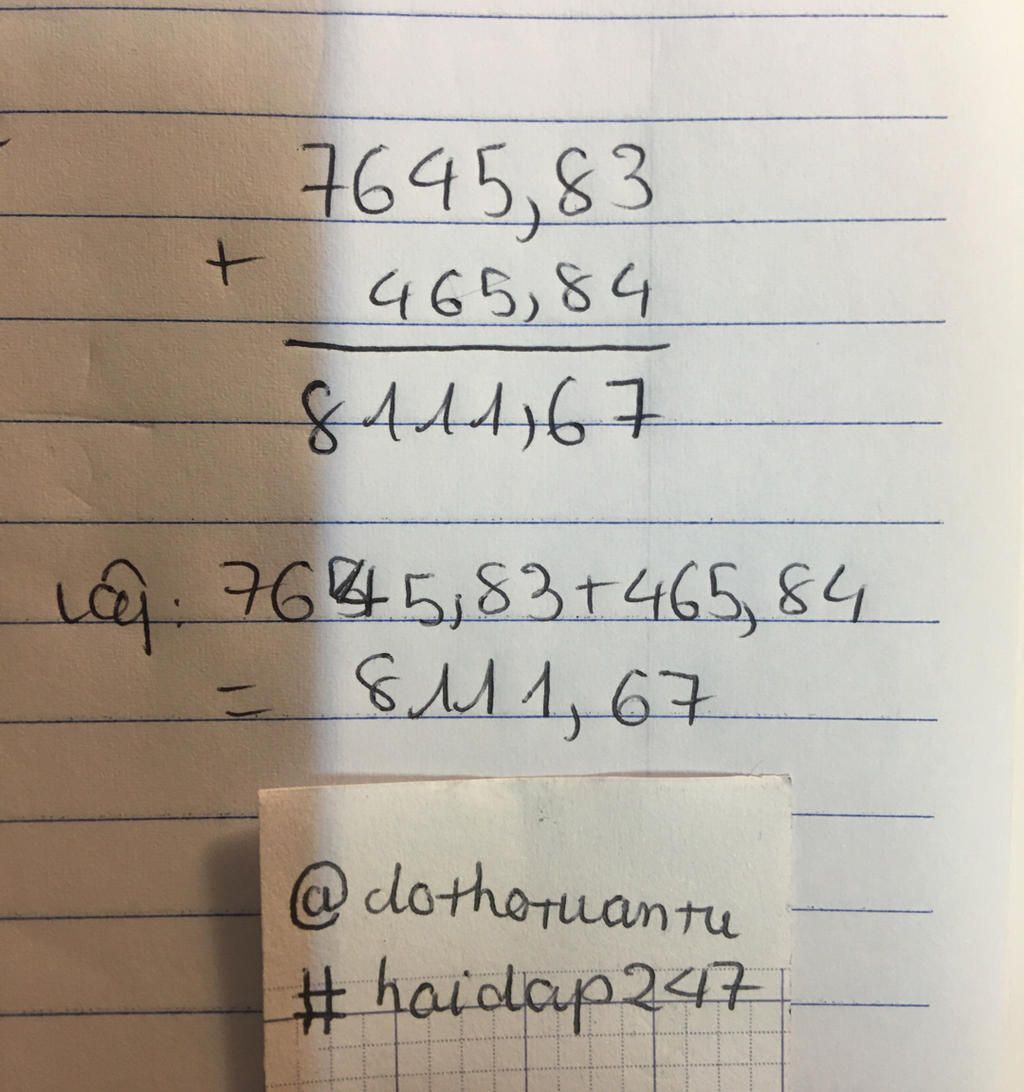 7645,83
+
465,84
8111,67
Vậy: 7645,83+465,84
= 8111,67
@dothotuantu
#haidap247